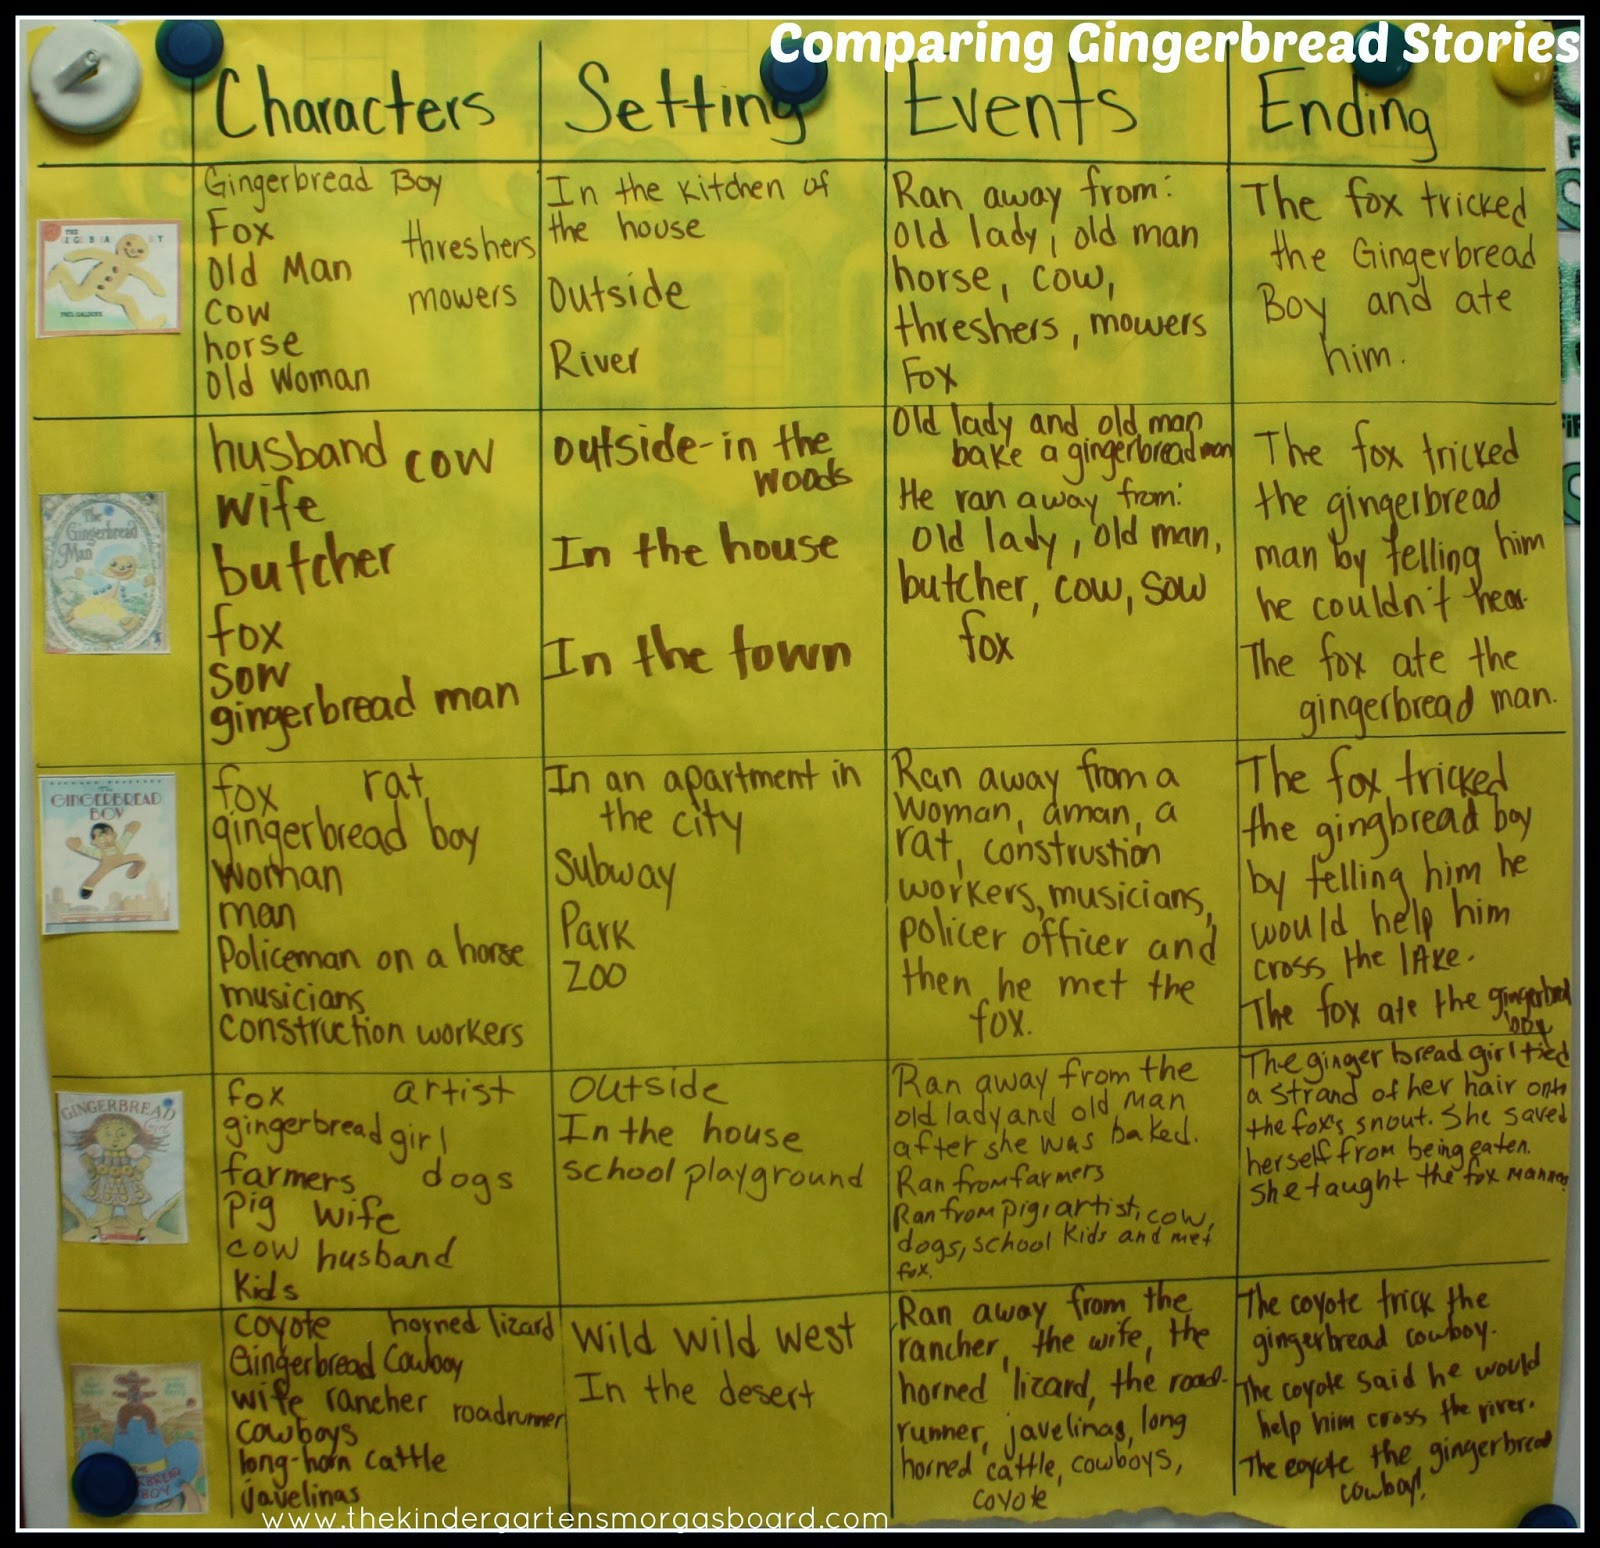 Comparing Gingerbread Stories
Characters
Setting
Events
Ending
Gingerbread Boy
Fox
threshers
Old Man
mowers
cow
horse
Old Woman
In the kitchen of
the house
Outside
River
Ran away from:
old lady, old man
horse, cow,
threshers, mowers
Fox
The fox tricked
the Gingerbread
Boy and ate
him.
The
Gingerbread
Man
husband cow
wife
butcher
fox
sow
gingerbread man
outside-in the
woods
In the house
In the town
Old lady and old man
bake a gingerbread man
He ran away from:
old lady, old man,
butcher, cow, sow
fox
The fox tricked
the gingerbread
man by telling him
he couldn't hear.
The fox ate the
gingerbread man.
The
GINGERBREAD
BOY
fox rat
gingerbread boy
woman
man
Policeman on a horse
musicians
construction workers
In an apartment in
the city
subway
Park
Zoo
Ran away from a
woman, aman, a
rat, construstion
workers, musicians,
policer officer and
then he met the
fox.
The fox tricked
the gingbread boy
by telling him he
would help him
cross the lake.
The fox ate the gingerbread
boy
GINGERBREAD
Girl
fox artist
gingerbread girl
farmers dogs
pig wife
cow husband
kids
outside
In the house
school playground
Ran away from the
old lady and old man
after she was baked.
Ran from farmers
Ran from pig, artist, cow,
dogs, school kids and met
fox.
The ginger bread girl tied
a strand of her hair onto
the fox's snout. She saved
herself from being eaten.
She taught the fox manners
coyote horned lizard
Gingerbread Cowboy
wife rancher roadrunner
cowboys
long-horn cattle
javelinas
Wild wild west
In the desert
Ran away from the
rancher, the wife, the
horned lizard, the road-
runner, javelinas, long
horned cattle, cowboys,
coyote
The coyote trick the
gingerbread cowboy.
The coyote said he would
help him cross the river.
The coyote the gingerbread
cowboy!
www.thekindergartensmorgasboard.com